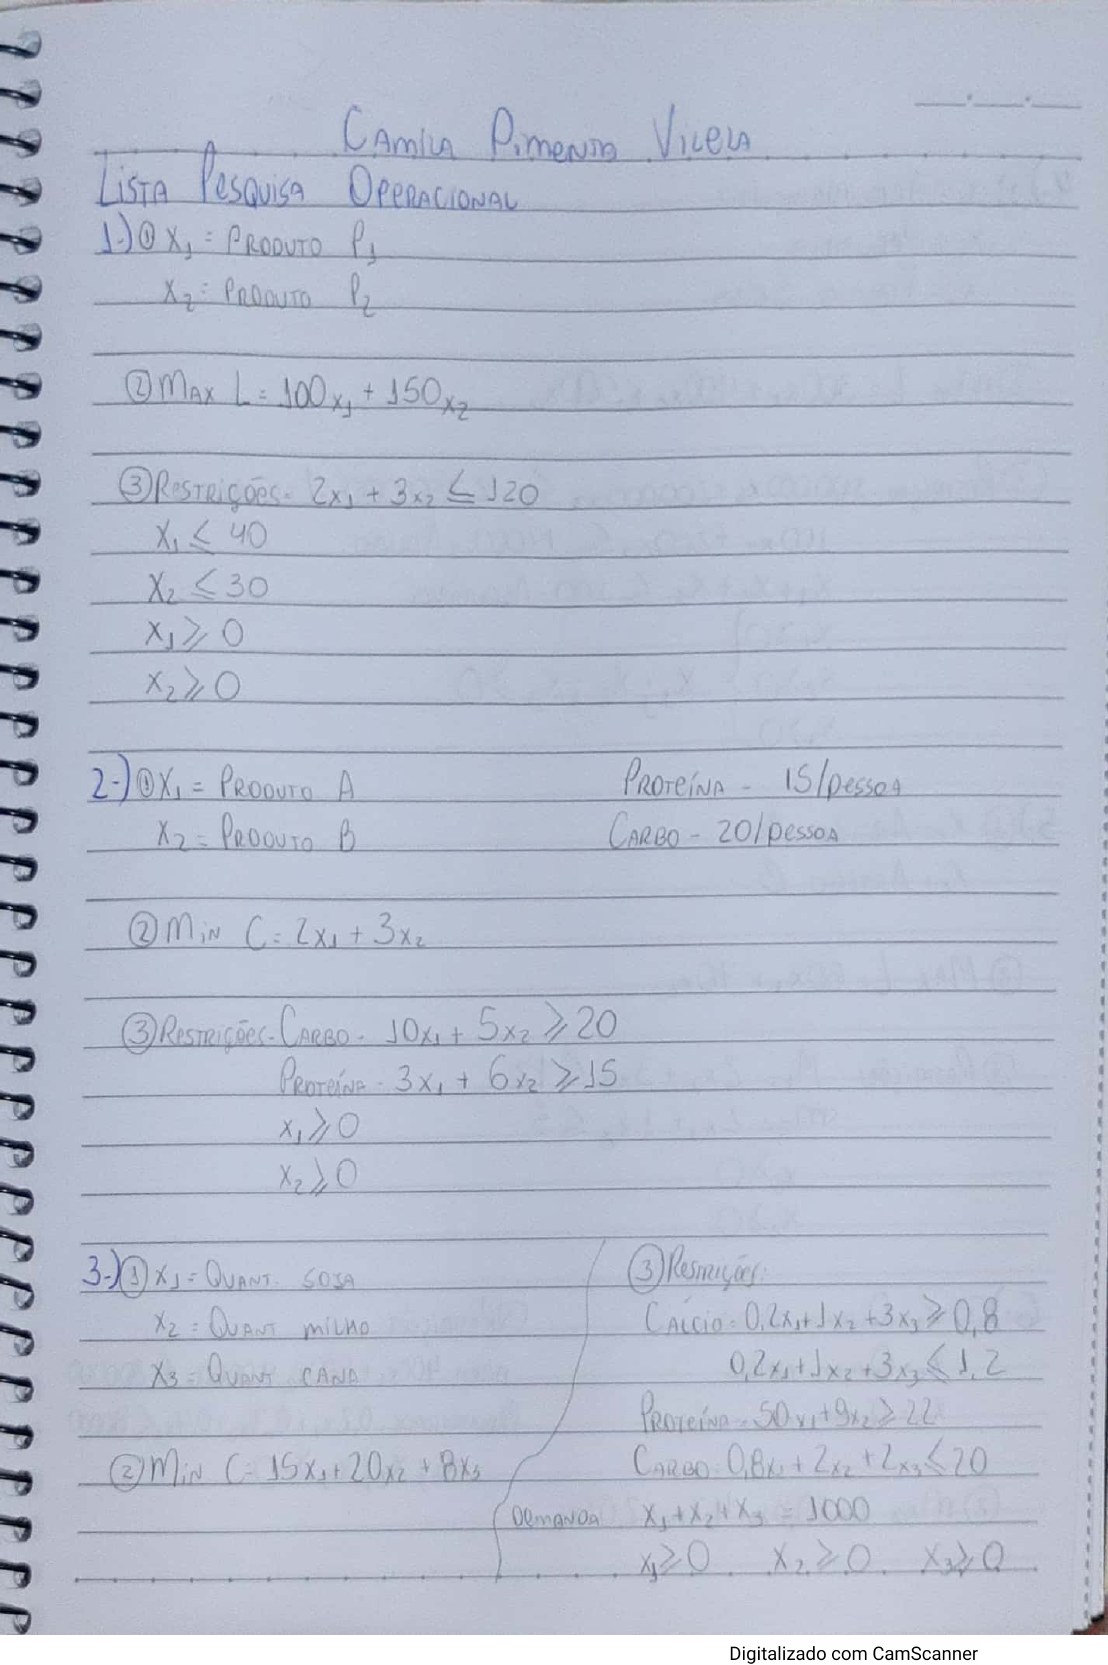 Camila Pimenta Vilela
Lista Pesquisa Operacional
1-) ① x₁ = Produto P₁
x₂ = Produto P₂
② Max L = 100x₁ + 150x₂
③ Restrições - 2x₁ + 3x₂ ≤ 120
x₁ ≤ 40
x₂ ≤ 30
x₁ ≥ 0
x₂ ≥ 0
2-) ① x₁ = Produto A
x₂ = Produto B
Proteína - 15/pessoa
Carbo - 20/pessoa
② Min C = 2x₁ + 3x₂
③ Restrições - Carbo - 10x₁ + 5x₂ ≥ 20
Proteína - 3x₁ + 6x₂ ≥ 15
x₁ ≥ 0
x₂ ≥ 0
3-) ① x₁ = Quant. soja
x₂ = Quant milho
x₃ = Quant. cana
② Min C = 15x₁ + 20x₂ + 8x₃
③ Restrições:
Cálcio = 0,2x₁ + 1x₂ + 3x₃ ≥ 0,8
0,2x₁ + 1x₂ + 3x₃ ≤ 1,2
Proteína = 50x₁ + 9x₂ ≥ 22
Carbo = 0,8x₁ + 2x₂ + 2x₃ ≤ 20
Demanda x₁ + x₂ + x₃ = 1000
x₁ ≥ 0 x₂ ≥ 0 x₃ ≥ 0
Digitalizado com CamScanner